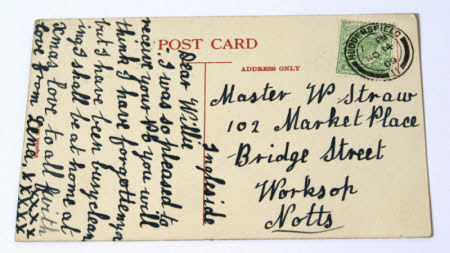 POST CARD
ADDRESS ONLY
HUDDERSFIELD
PM
NO 14
09
Master W Straw
102 Market Place
Bridge Street
Worksop
Notts
Ingleside
Dear Willie
I was so pleased to
receive your you will
think I have forgotten you
but I have been busy clean
ing I shall be at home at
Xmas love to all with
love from Lena xxxxx